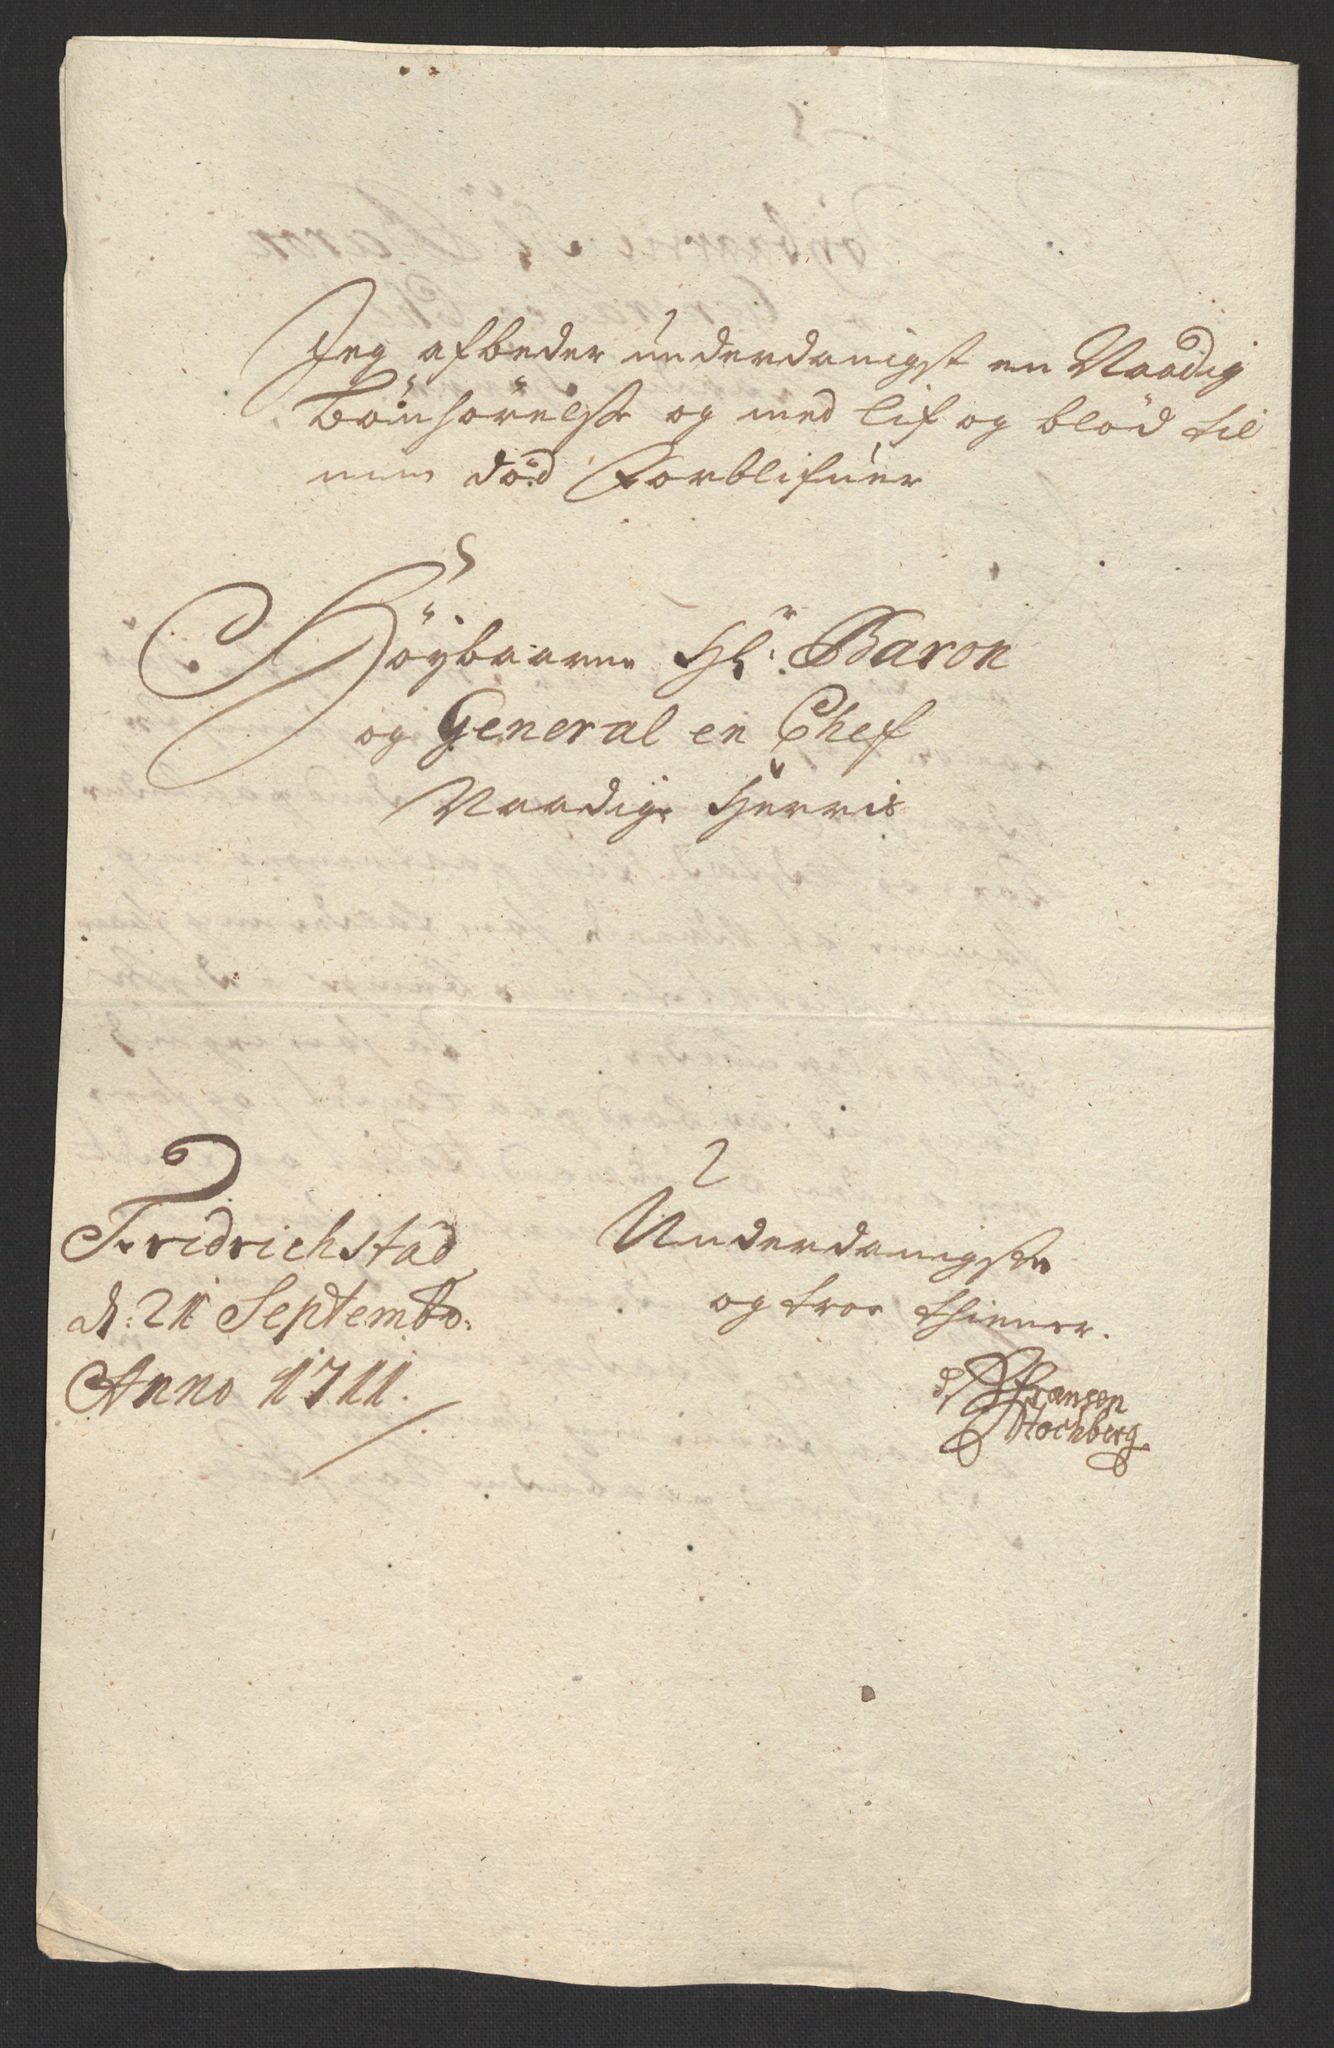 Jeg afbeder underdanigst en Naadig
bönhörelse og med lif og blod til
min död Forblifuer
Höybaarne Hr. Baron
og General en Chef
Naadige Herris
Fridrichstad
d: 21 Septembr:
Anno 1711.
Underdanigste
og troe thiener.
Fransen
Stochberg.